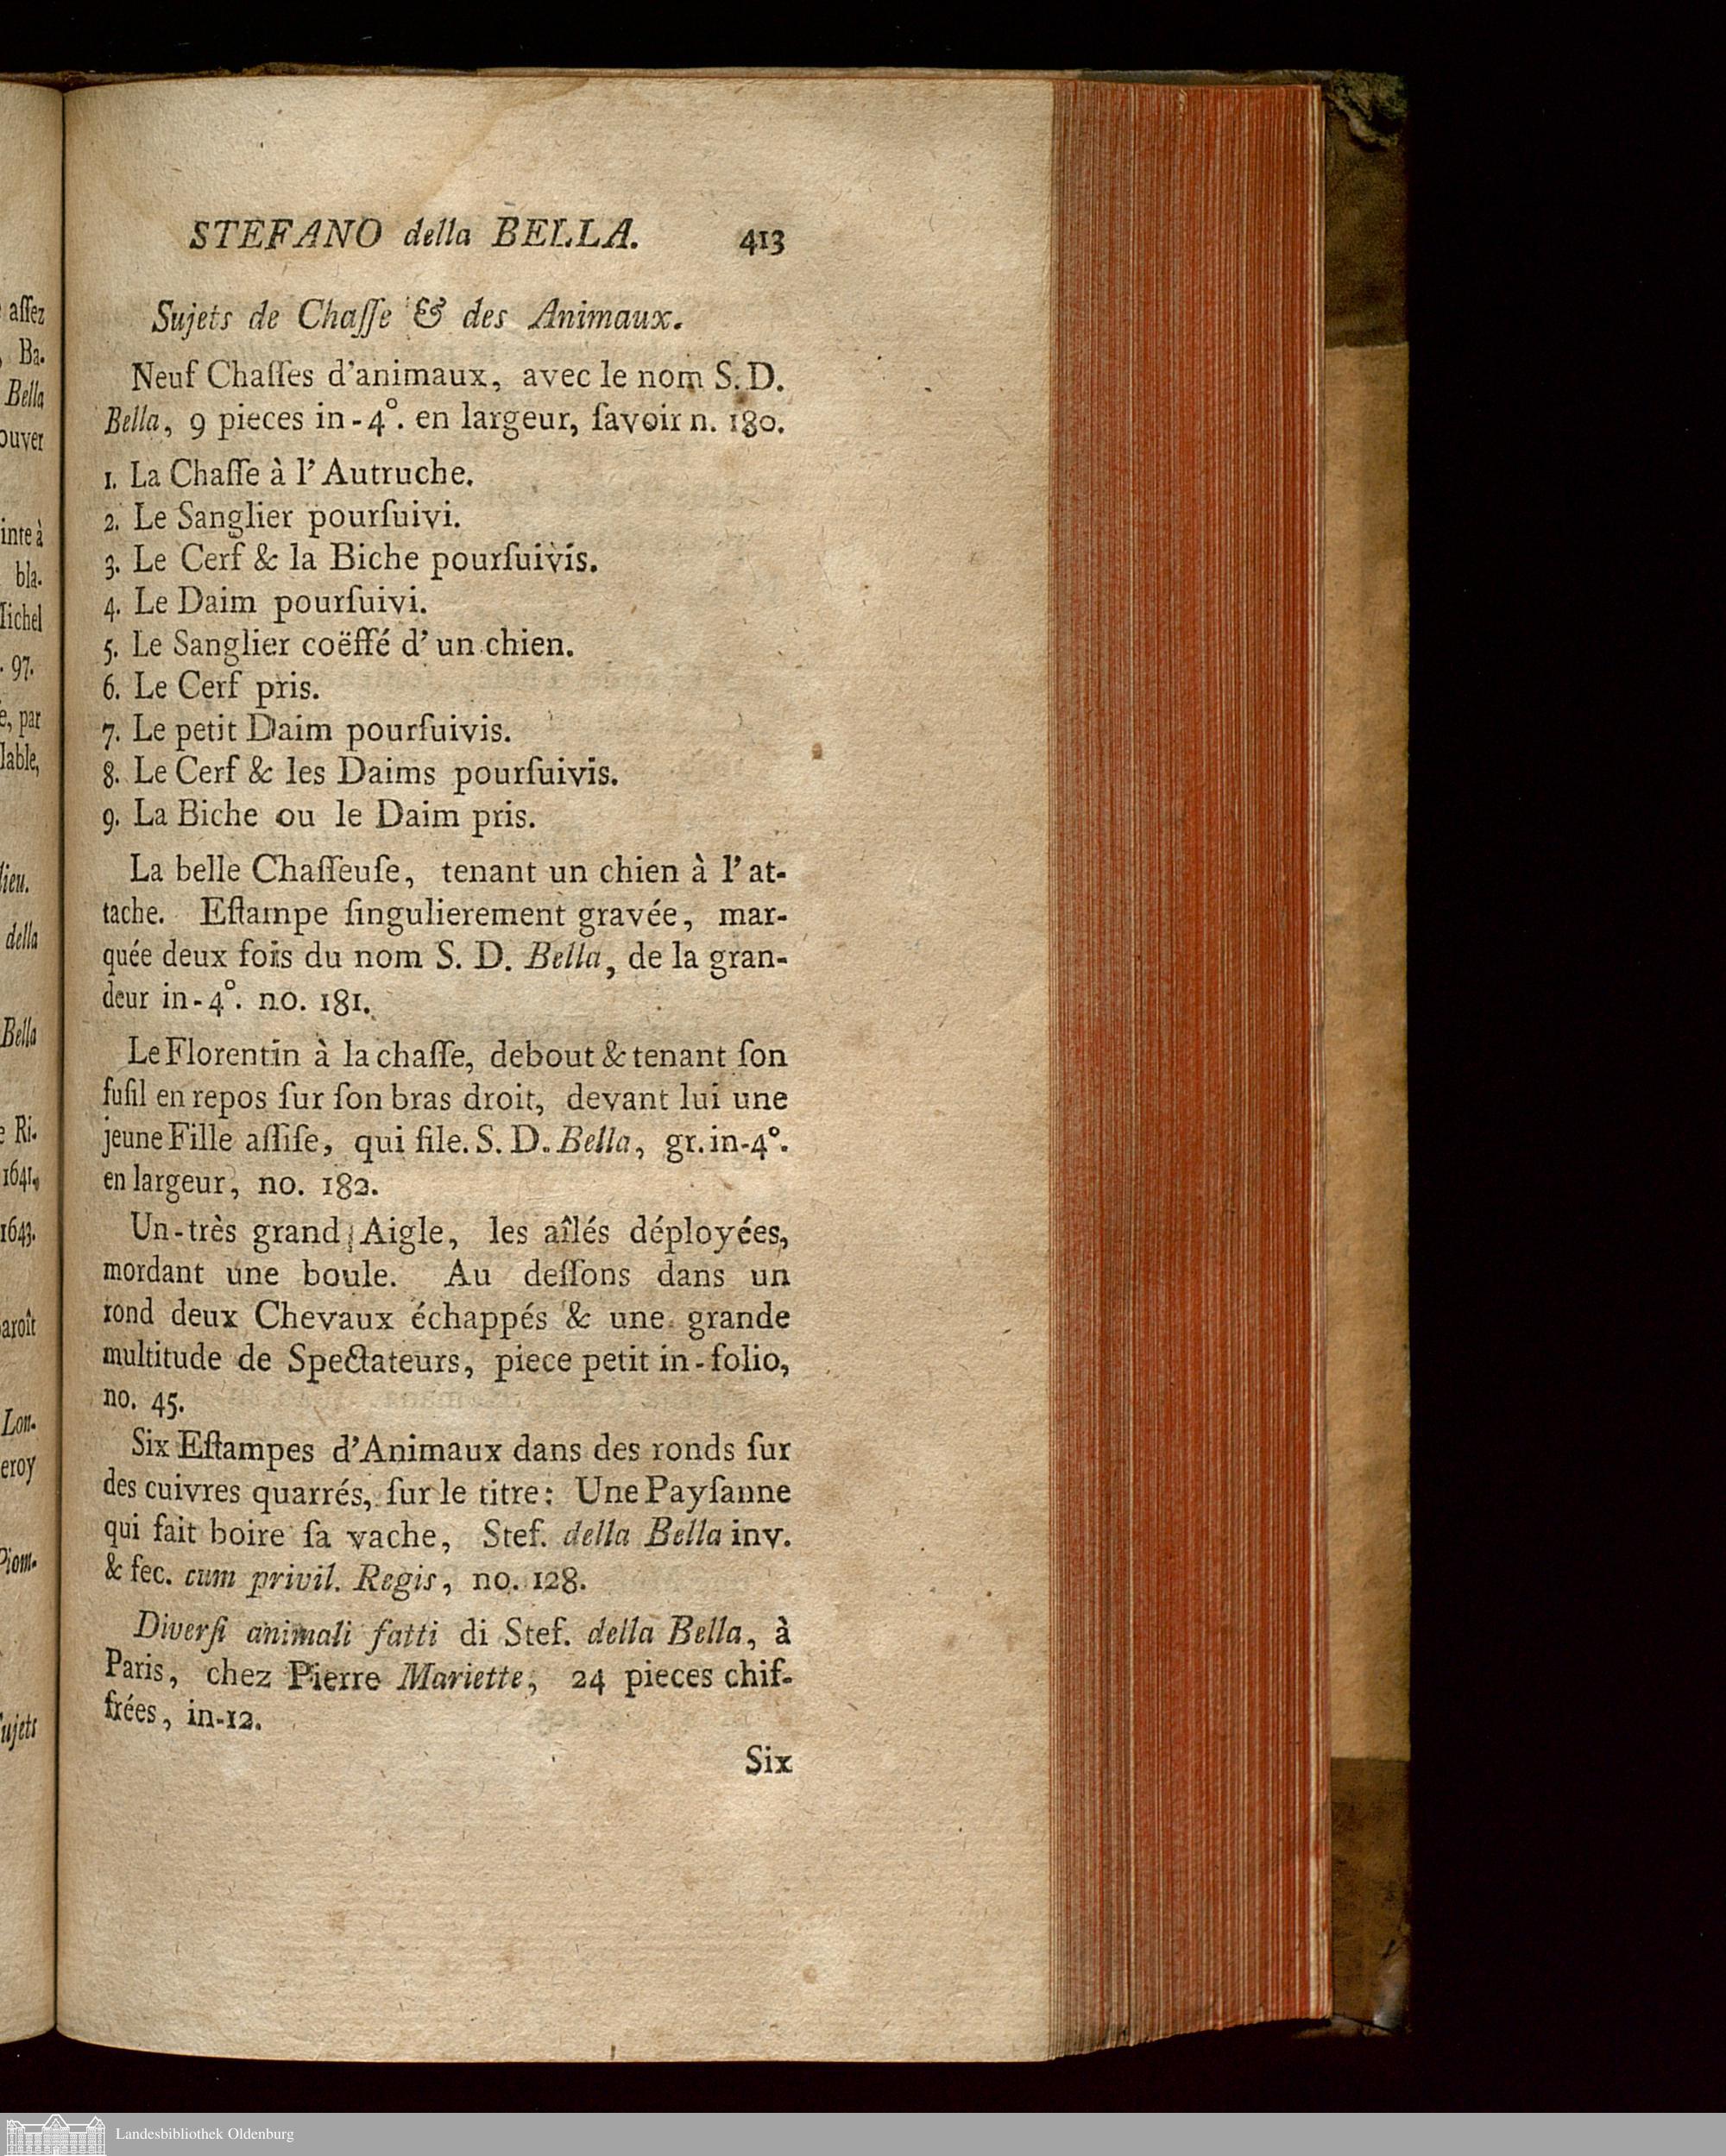 STEFANO della BELLA. 413
Sujets de Chaſſe & des Animaux.
Neuf Chaſſes d'animaux, avec le nom S. D.
Bella, 9 pieces in-4°. en largeur, ſavoir n. 180.
1. La Chaſſe à l' Autruche.
2. Le Sanglier pourſuivi.
3. Le Cerf & la Biche pourſuivis.
4. Le Daim pourſuivi.
5. Le Sanglier coëffé d' un chien.
6. Le Cerf pris.
7. Le petit Daim pourſuivis.
8. Le Cerf & les Daims pourſuivis.
9. La Biche ou le Daim pris.
La belle Chaſſeuſe, tenant un chien à l' at-
tache. Eſtampe ſingulierement gravée, mar-
quée deux fois du nom S. D. Bella, de la gran-
deur in-4°. no. 181.
Le Florentin à la chaſſe, debout & tenant ſon
fuſil en repos ſur ſon bras droit, devant lui une
jeune Fille aſſiſe, qui file. S. D. Bella, gr. in-4°.
en largeur, no. 182.
Un-très grand Aigle, les aîlés déployées,
mordant une boule. Au deſſons dans un
rond deux Chevaux échappés & une grande
multitude de Spectateurs, piece petit in-folio,
no. 45.
Six Eſtampes d'Animaux dans des ronds ſur
des cuivres quarrés, ſur le titre: Une Payſanne
qui fait boire ſa vache, Stef. della Bella inv.
& fec. cum privil. Regis, no. 128.
Diverſi animali fatti di Stef. della Bella, à
Paris, chez Pierre Mariette, 24 pieces chif-
frées, in-12.
Six
aſſez
Ba.
Bella
ouver
inte à
bla.
97.
par
lable,
lieu.
della
Bella
Ri.
1641.
1643.
aroît
Lon-
eroy
Piom-
ujets
Landesbibliothek Oldenburg